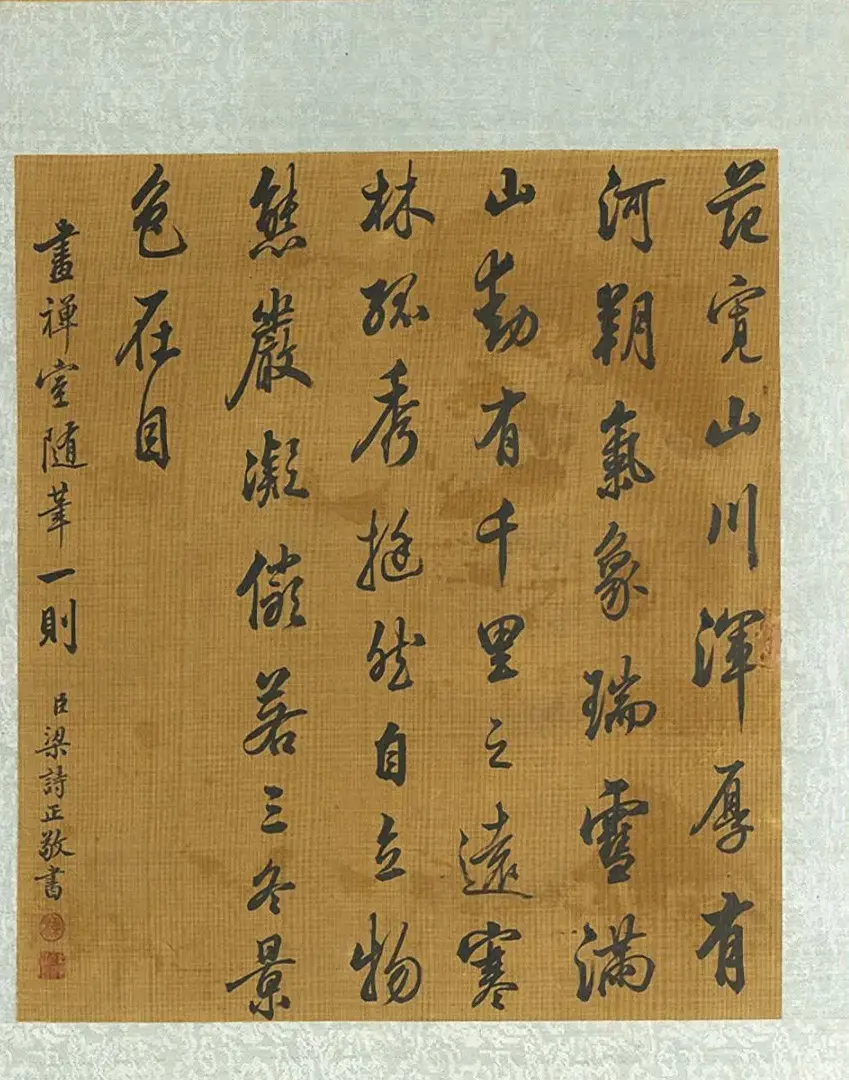 范寬山川渾厚有
河朔氣象瑞雪滿
山動有千里之遠寒
林孤秀挺然自立物
態嚴凝儼若三冬景
色在目
畫禪室隨筆一則
臣梁詩正敬書